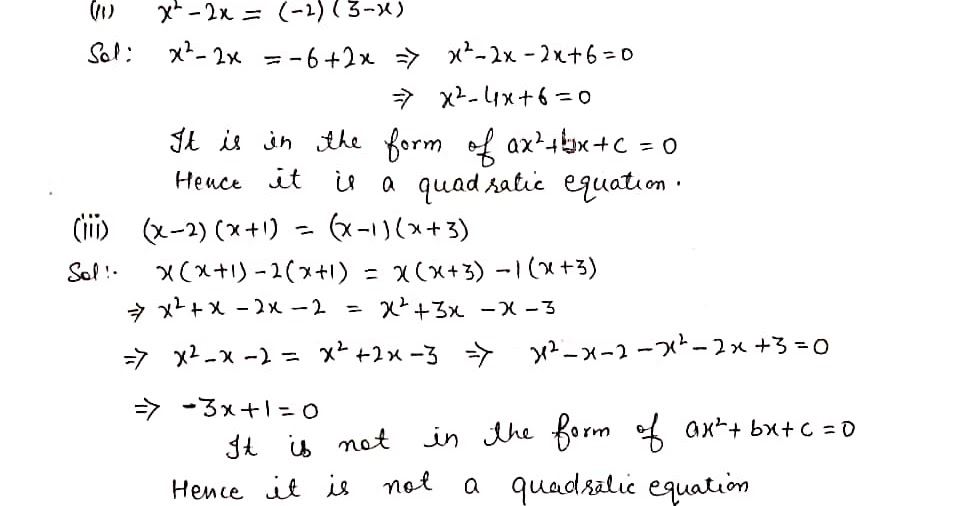 (ii) x² - 2x = (-2) (3-x)
Sol: x² - 2x = -6+2x ⇒ x² - 2x - 2x + 6 = 0
⇒ x² - 4x + 6 = 0
It is in the form of ax²+bx+c = 0
Hence it is a quadratic equation.
(iii) (x-2) (x+1) = (x-1) (x+3)
Sol:- x(x+1) - 2(x+1) = x(x+3) - 1(x+3)
⇒ x² + x - 2x - 2 = x² + 3x - x - 3
⇒ x² - x - 2 = x² + 2x - 3 ⇒ x² - x - 2 - x² - 2x + 3 = 0
⇒ -3x + 1 = 0
It is not in the form of ax² + bx + c = 0
Hence it is not a quadratic equation